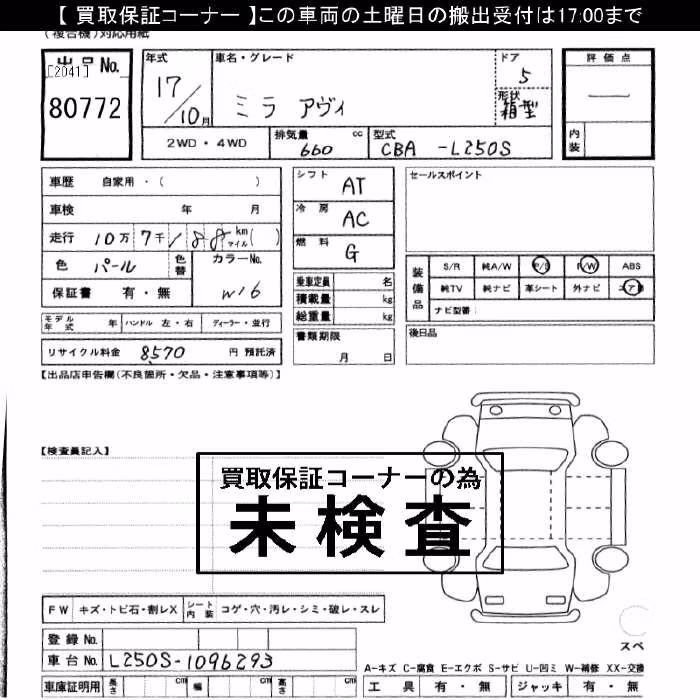 【 買取保証コーナー 】この車両の土曜日の搬出受付は17:00まで
(複合機)対応用紙
出品No. [2041] 80772
年式 17/10月
車名・グレード ミラ アヴィ
ドア 5
形状 箱型
評価点 —
内装
2WD・4WD
排気量 660 cc
型式 CBA -L250S
車歴 自家用・( )
車検 年 月
走行 10万 7千 188 km マイル( )
色 パール
色替
カラーNo. W16
保証書 有・無
シフト AT
冷房 AC
燃料 G
乗車定員 名
積載量 kg
総重量 kg
書類期限 月 日
セールスポイント
装備品
S/R 純A/W P/S P/W ABS
純TV 純ナビ 革シート 外ナビ エア
ナビ型番:
モデル年式 年 ハンドル 左・右 ディーラー・並行
リサイクル料金 8570 円 預託済
後日品
【出品店申告欄(不良箇所・欠品・注意事項等)】
【検査員記入】
買取保証コーナーの為
未検査
FW キズ・トビ石・割レX
シート内装 コゲ・穴・汚レ・シミ・破レ・スレ
登録No.
車台No. L250S-1096293
車庫証明用 長さ cm 幅 cm 高さ cm
スペ
A-キズ C-腐食 E-エクボ S-サビ U-凹ミ W-補修 XX-交換
工具 有・無 ジャッキ 有・無